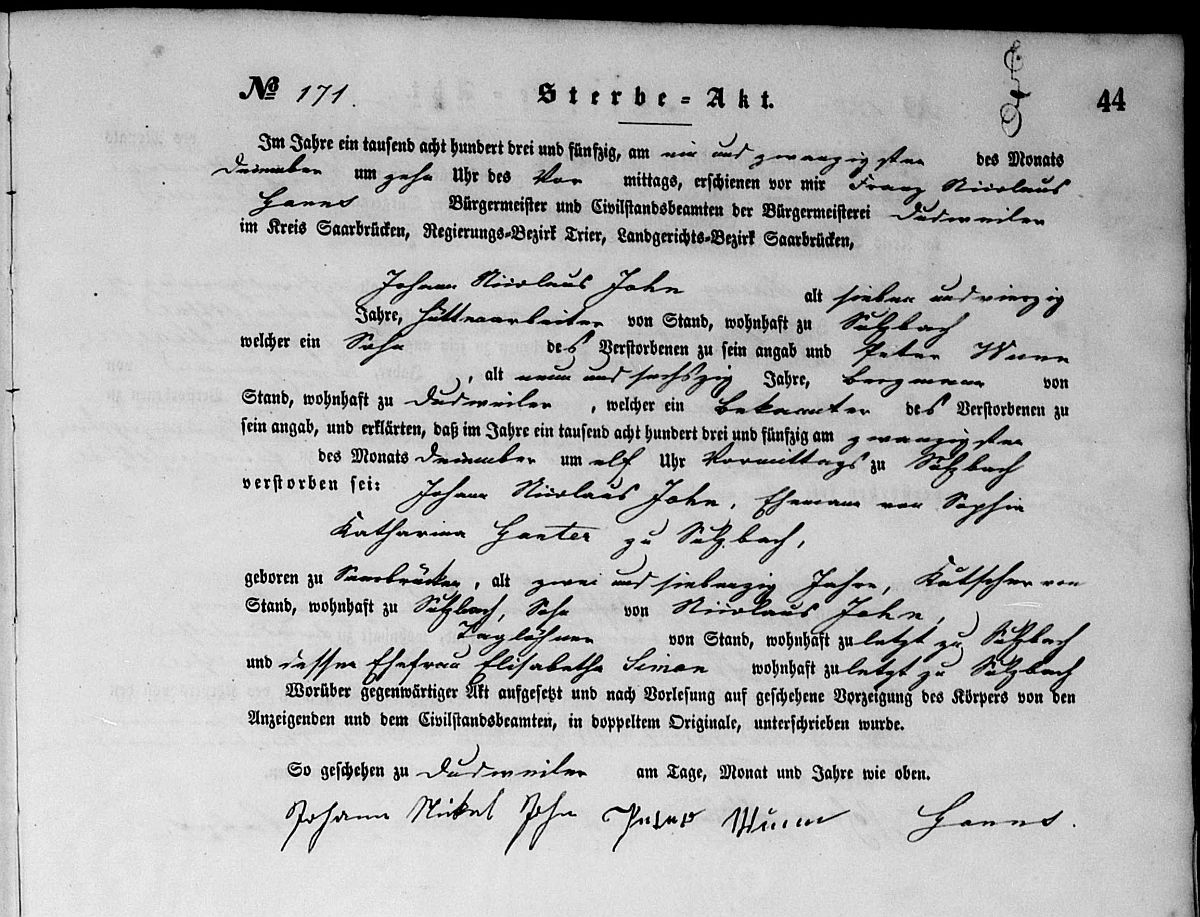 № 171. Sterbe-Akt. 44
Im Jahre ein tausend acht hundert drei und fünfzig, am ein und zwanzigsten des Monats
Dezember um zehn Uhr des Vor mittags, erschienen vor mir Franz Nicolaus
Bürgermeister und Civilstandsbeamten der Bürgermeisterei Dudweiler
im Kreis Saarbrücken, Regierungs-Bezirk Trier, Landgerichts-Bezirk Saarbrücken,
Johann Nicolaus John alt sieben und vierzig
Jahre, Hüttenarbeiter von Stand, wohnhaft zu Sulzbach
welcher ein Sohn des Verstorbenen zu sein angab und Peter
, alt neun und sechszig Jahre, Bergmann von
Stand, wohnhaft zu Dudweiler, welcher ein Bekannter des Verstorbenen zu
sein angab, und erklärten, daß im Jahre ein tausend acht hundert drei und fünfzig am zwanzigsten
des Monats Dezember um elf Uhr Vormittags zu Sulzbach
verstorben sei: Johann Nicolaus John, Ehemann von Sophia
Katharina zu Sulzbach,
geboren zu Saarbrücken, alt zwei und siebenzig Jahre, Kutscher von
Stand, wohnhaft zu Sulzbach, Sohn von Nicolaus John,
Taglöhner von Stand, wohnhaft zu letzt zu Sulzbach
und dessen Ehefrau Elisabetha Simon wohnhaft zu letzt zu Sulzbach
Worüber gegenwärtiger Akt aufgesetzt und nach Vorlesung auf geschehene Vorzeigung des Körpers von den
Anzeigenden und dem Civilstandsbeamten, in doppeltem Originale, unterschrieben wurde.
So geschehen zu Dudweiler am Tage, Monat und Jahre wie oben.
Johann Nikel John Peter